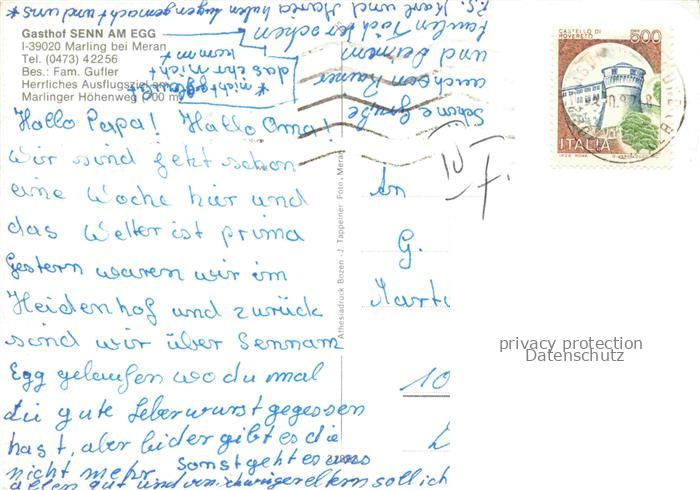 Gasthof SENN AM EGG
I-39020 Marling bei Meran
Tel. (0473) 42256
Bes.: Fam. Gufler
Herrliches Ausflugsziel am
Marlinger Höhenweg
Hallo Papa! Hallo Oma!
Wir sind jetzt schon
eine Woche hier und
das Wetter ist prima
Gestern waren wir im
Heidenhof und zurück
sind wir über Sennam
Egg gelaufen wo du mal
die gute Leberwurst gegessen
hast, aber leider gibt es die
nicht mehr sonst geht es uns
allen gut und
soll ich
Schöne Grüße
auch von Rainer
und deinem
P.S. Karl und Maria haben Augen gemacht und uns *
* nicht geglaubt
das ihr nicht
kommt
Athesiadruck Bozen - J. Tappeiner Foto, Meran
An
G.
Mart
10
CASTELLO DI
ROVERETO
500
ITALIA
privacy protection
Datenschutz